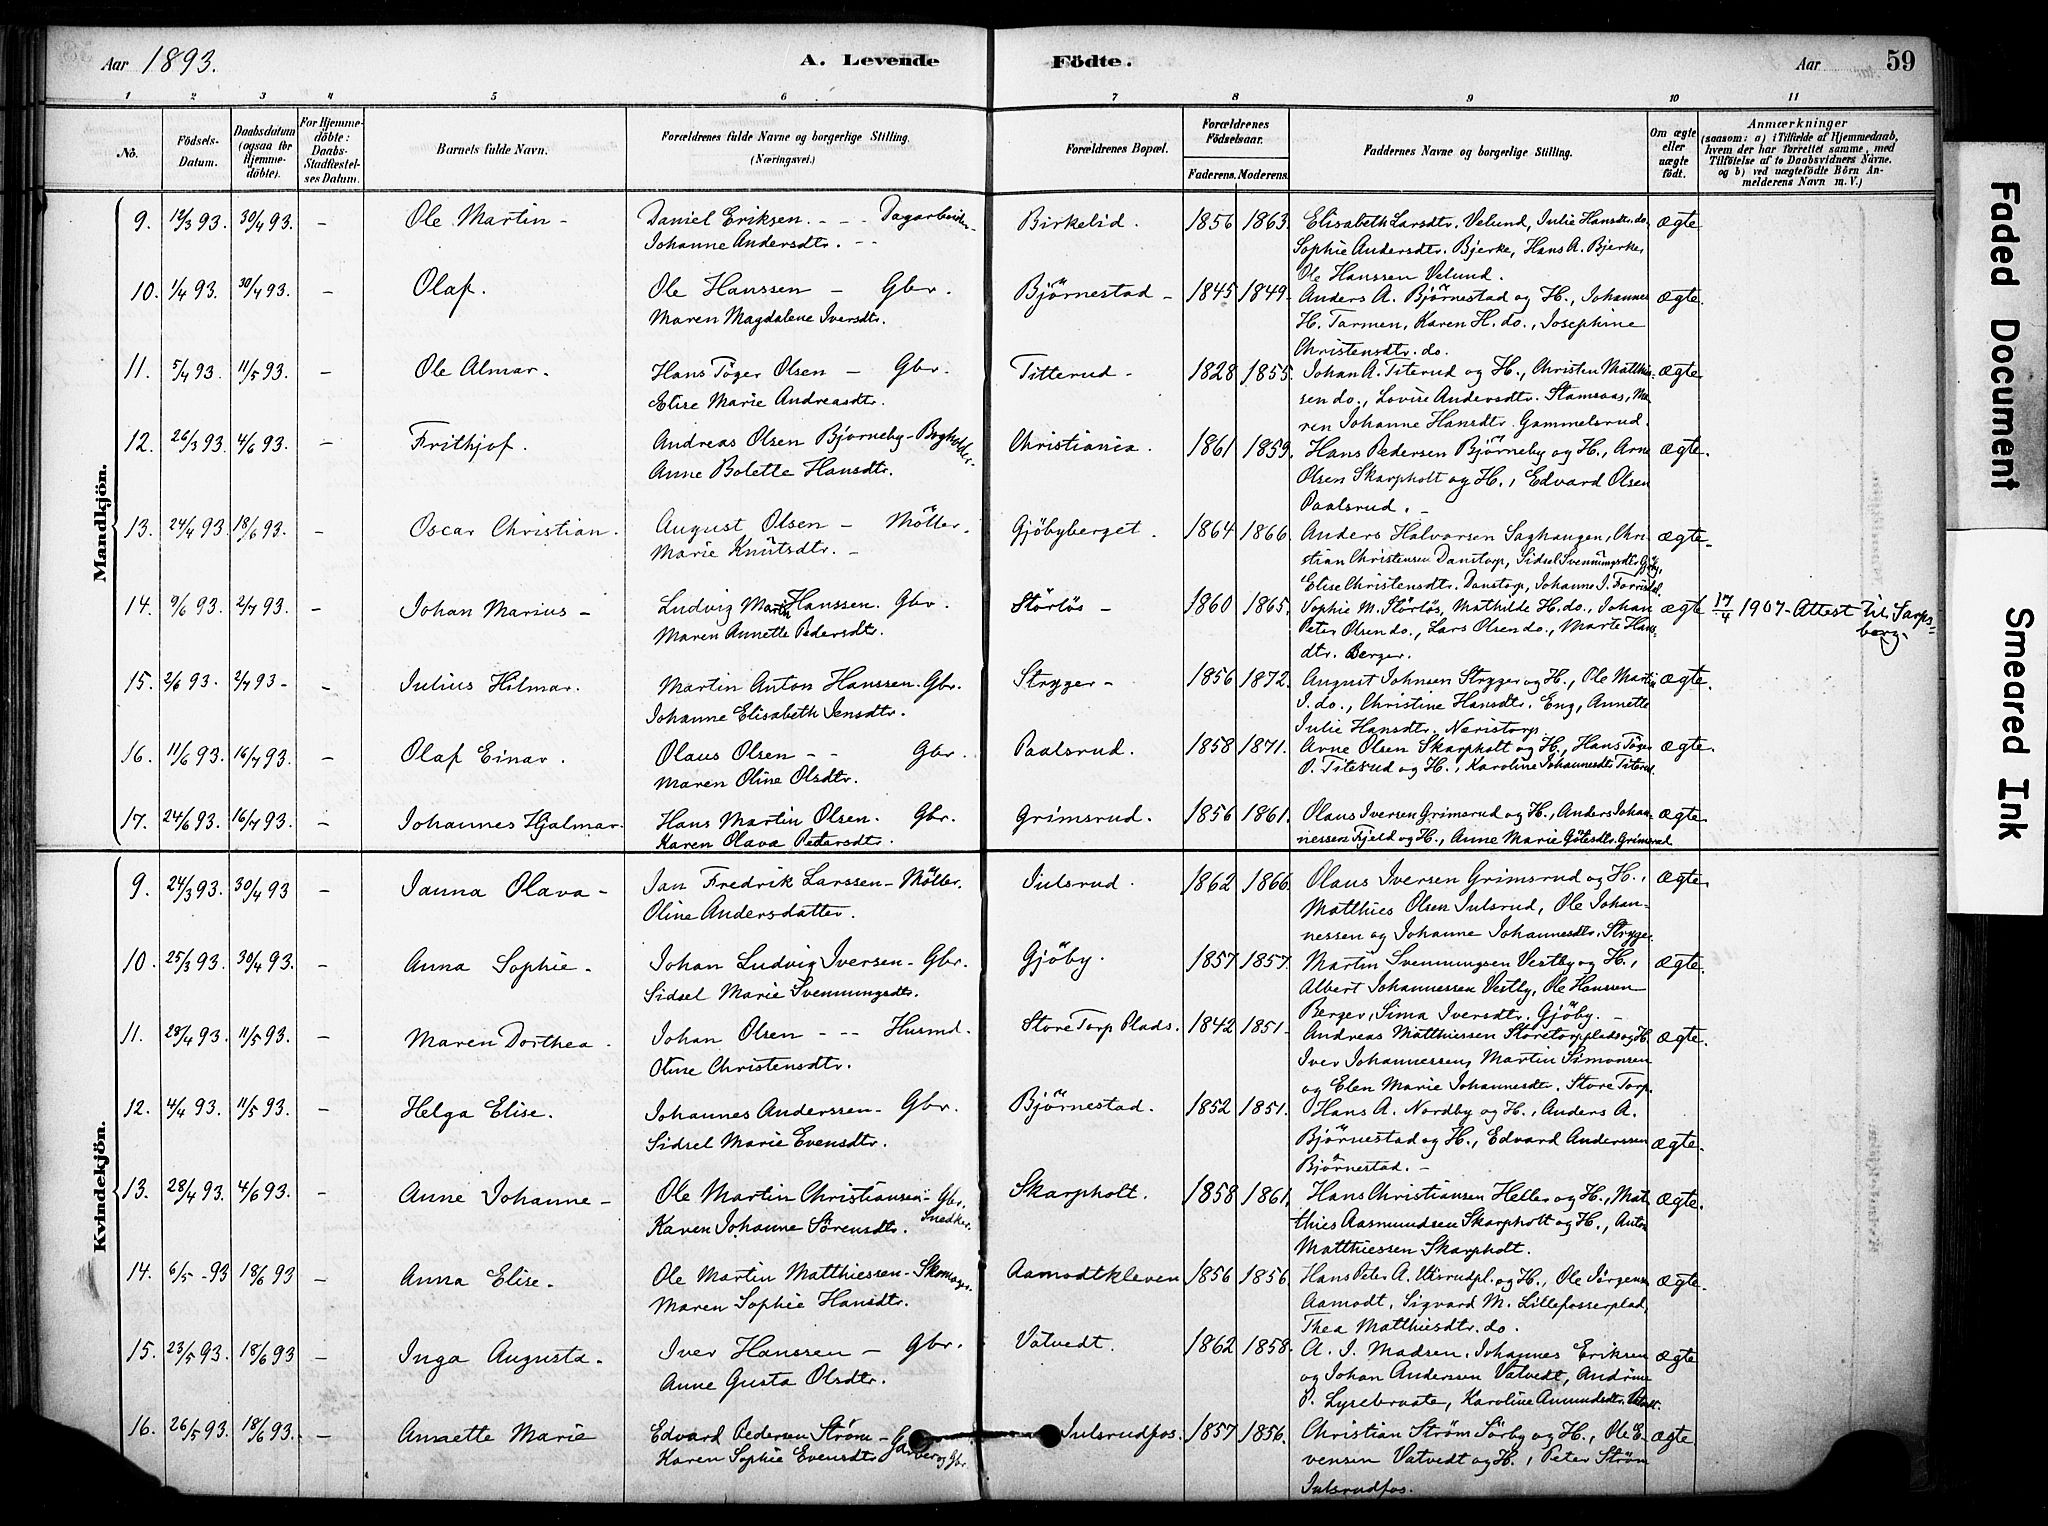 Aar 1893. A. Levende Födte. Aar 59
1 2 3 4 5 6 7 8 9 10 11
No. Födsels-Datum. Daabsdatum (ogsaa for Hjemme-döbte). For Hjemme-döbte: Daabs-Stadfæstel-ses Datum. Barnets fulde Navn. Forældrenes fulde Navne og borgerlige Stilling. (Næringsvei.) Forældrenes Bopæl. Forældrenes Födselsaar. Faderens. Moderens. Faddernes Navne og borgerlige Stilling. Om ægte eller uægte födt. Anmærkninger (saasom: a) i Tilfælde af Hjemmedaab, hvem der har forrettet samme, med Tilföielse af to Daabsvidners Navne, og b) ved uægtefödte Börn An-melderens Navn m. V.)
Mandkjön.
9. 12/3 93. 30/4 93. – Ole Martin – Daniel Eriksen. – – Dagarbeider Birkelid. 1856 1863. Elisabeth Larsdtr. Velund, Julie Hansdtr. do. ægte
Johanne Andersdtr. – – Sophie Andersdtr. Bjerke, Hans A. Bjerke,
Ole Hanssen Velund.
10. 1/4 93. 30/4 93. – Olaf. Ole Hanssen – Gbr. Björnestad – 1845 1849. Anders A. Björnestad og H., Johannes ægte
Maren Magdalene Iversdtr. H. Tarmen, Karen H. do., Josephine
Christensdtr. do.
11. 5/4 93. 11/5 93. – Ole Almar. Hans Töger Olsen – Gbr. Titterud. 1828 1855. Johan A. Titerud og H., Christen Matthie- ægte
Elise Marie Andreasdtr. sen do., Lovise Andersdtr. Stamsaas, Ma-
ren Johanne Hansdtr. Gammelsrud.
12. 26/3 93. 4/6 93. – Frithjof. Andreas Olsen Bjorneby – Bogholder Christiania. 1861 1859. Hans Pedersen Björneby og H., Arne ægte.
Anne Bolette Hansdtr. Olsen Skarpholt og H., Edvard Olsen
Paalsrud. –
13. 24/4 93. 18/6 93. – Oscar Christian. August Olsen – Möller. Gjöbyberget. 1864 1866. Anders Halvorsen Saghaugen, Chri- ægte
Marie Knutsdtr. – stian Christensen Danstorp, Sidsel Svenningsdtr. Gjöby,
Elise Christensdtr. Danstorp, Johanne J.
14. 9/6 93. 2/7 93. – Johan Marius – Ludvig Martin Hanssen. Gbr. Störlös – 1860 1865. Sophie M. Störlös, Mathilde H. do., Johan ægte 17/4 1907 – Attest til Sarps=
Maren Annette Pedersdtr. Peter Olsen do., Lars Olsen do., Marte Hans- berg.
dtr. Berger.
15. 2/6 93. 2/7 93 – – Julius Hilmar. Martin Anton Hanssen. Gbr. Stryger – 1856 1872. August Johnsen Stryger og H., Ole Martin ægte.
Johanne Elisabeth Jensdtr. J. do., Christine Hansdtr. Eng, Annette
Julie Hansdtr. Neristorp.
16. 11/6 93. 16/7 93. – Olaf Einar. Olaus Olsen – – Gbr. Paalsrud. 1858 1871. Arne Olsen Skarpholt og H., Hans Töger ægte.
Maren Oline Olsdtr. O. Titerud og H., Karoline Johannesdtr. Titerud.
17. 24/6 93. 16/7 93. – Johannes Hjalmar. Hans Martin Olsen. Gbr. Grimsrud. 1856 1861. Olaus Iversen Grimsrud og H., Anders Johan- ægte.
Karen Olava Pedersdtr. nessen Fjeld og H., Anne Marie Götesdtr. Grimsrud
Kvindekjön.
9. 24/3 93. 30/4 93 – Janna Olava – Jan Fredrik Larssen – Möller. Julsrud. 1862 1866. Olaus Iversen Grimsrud og H., ægte
Oline Andersdatter. Matthies Olsen Julsrud, Ole Johan-
nessen og Johanne Johannesdtr. Stryger.
10. 25/3 93. 30/4 93. – Anna Sophie. Johan Ludvig Iversen – Gbr. Gjöby. 1857 1857. Martin Svenningsen Vestby og H., ægte.
Sidsel Marie Svenningsdtr. Albert Johannessen Vestby, Ole Hansen
Berger, Sima Iversdtr. Gjöby. –
11. 28/4 93. 11/5 93. – Maren Dorthea. Johan Olsen – – – Husmd. Store Torp Plads. 1842 1851. Andreas Matthiessen Storetorpplads og H. ægte.
Oline Christensdtr. Iver Johannessen, Martin Simonsen
og Elen Marie Johannesdtr. Store Torp.
12. 4/4 93. 11/5 93. – Helga Elise. Johannes Anderssen – Gbr. Björnestad. 1852 1851. Hans A. Nordby og H., Anders A.
Sidsel Marie Evensdtr. Björnestad og H., Edvard Anderssen ægte.
Björnestad. –
13. 28/4 93. 4/6 93. – Anne Johanne – Ole Martin Christiansen – Gbr. Skarpholt. 1858 1861. Hans Christiansen Heller og H., Mat- ægte.
Karen Johanne Sörensdtr. Snedker. thies Aasmundsen Skarpholt og H., Anton
Matthiessen Skarpholt.
14. 6/5 – 93 18/6 93 – Anna Elise. Ole Martin Matthiessen – Skomager. Aamodtkleven 1856 1856. Hans Peter A. og H., Ole Jörgensen ægte.
Maren Sophie Hansdtr. Aamodt, Sigvard M. Lillefosserplad,
Thea Matthiesdtr. do.
15. 23/5 93. 18/6 93 – Inga Augusta. Iver Hanssen – Gbr. Vatvedt. 1862 1858. A. J. Madsen, Johannes Eriksen ægte
Anne Gusta Olsdtr. og Johan Anderssen Vatvedt, Andrine
P. Lysebraate, Karoline Amundsdtr. Vatvedt.
16. 26/5 93. 18/6 93. – Annette Marie Edvard Pedersen Ström – Garver og Gbr. Julsrudfos. 1857 1856. Christian Ström Sörby og H., Ole E- ægte
Karen Sophie Evensdtr. vensen Vatvedt og H., Peter Ström
Julsrudfos.
Faded Document
Smeared Ink